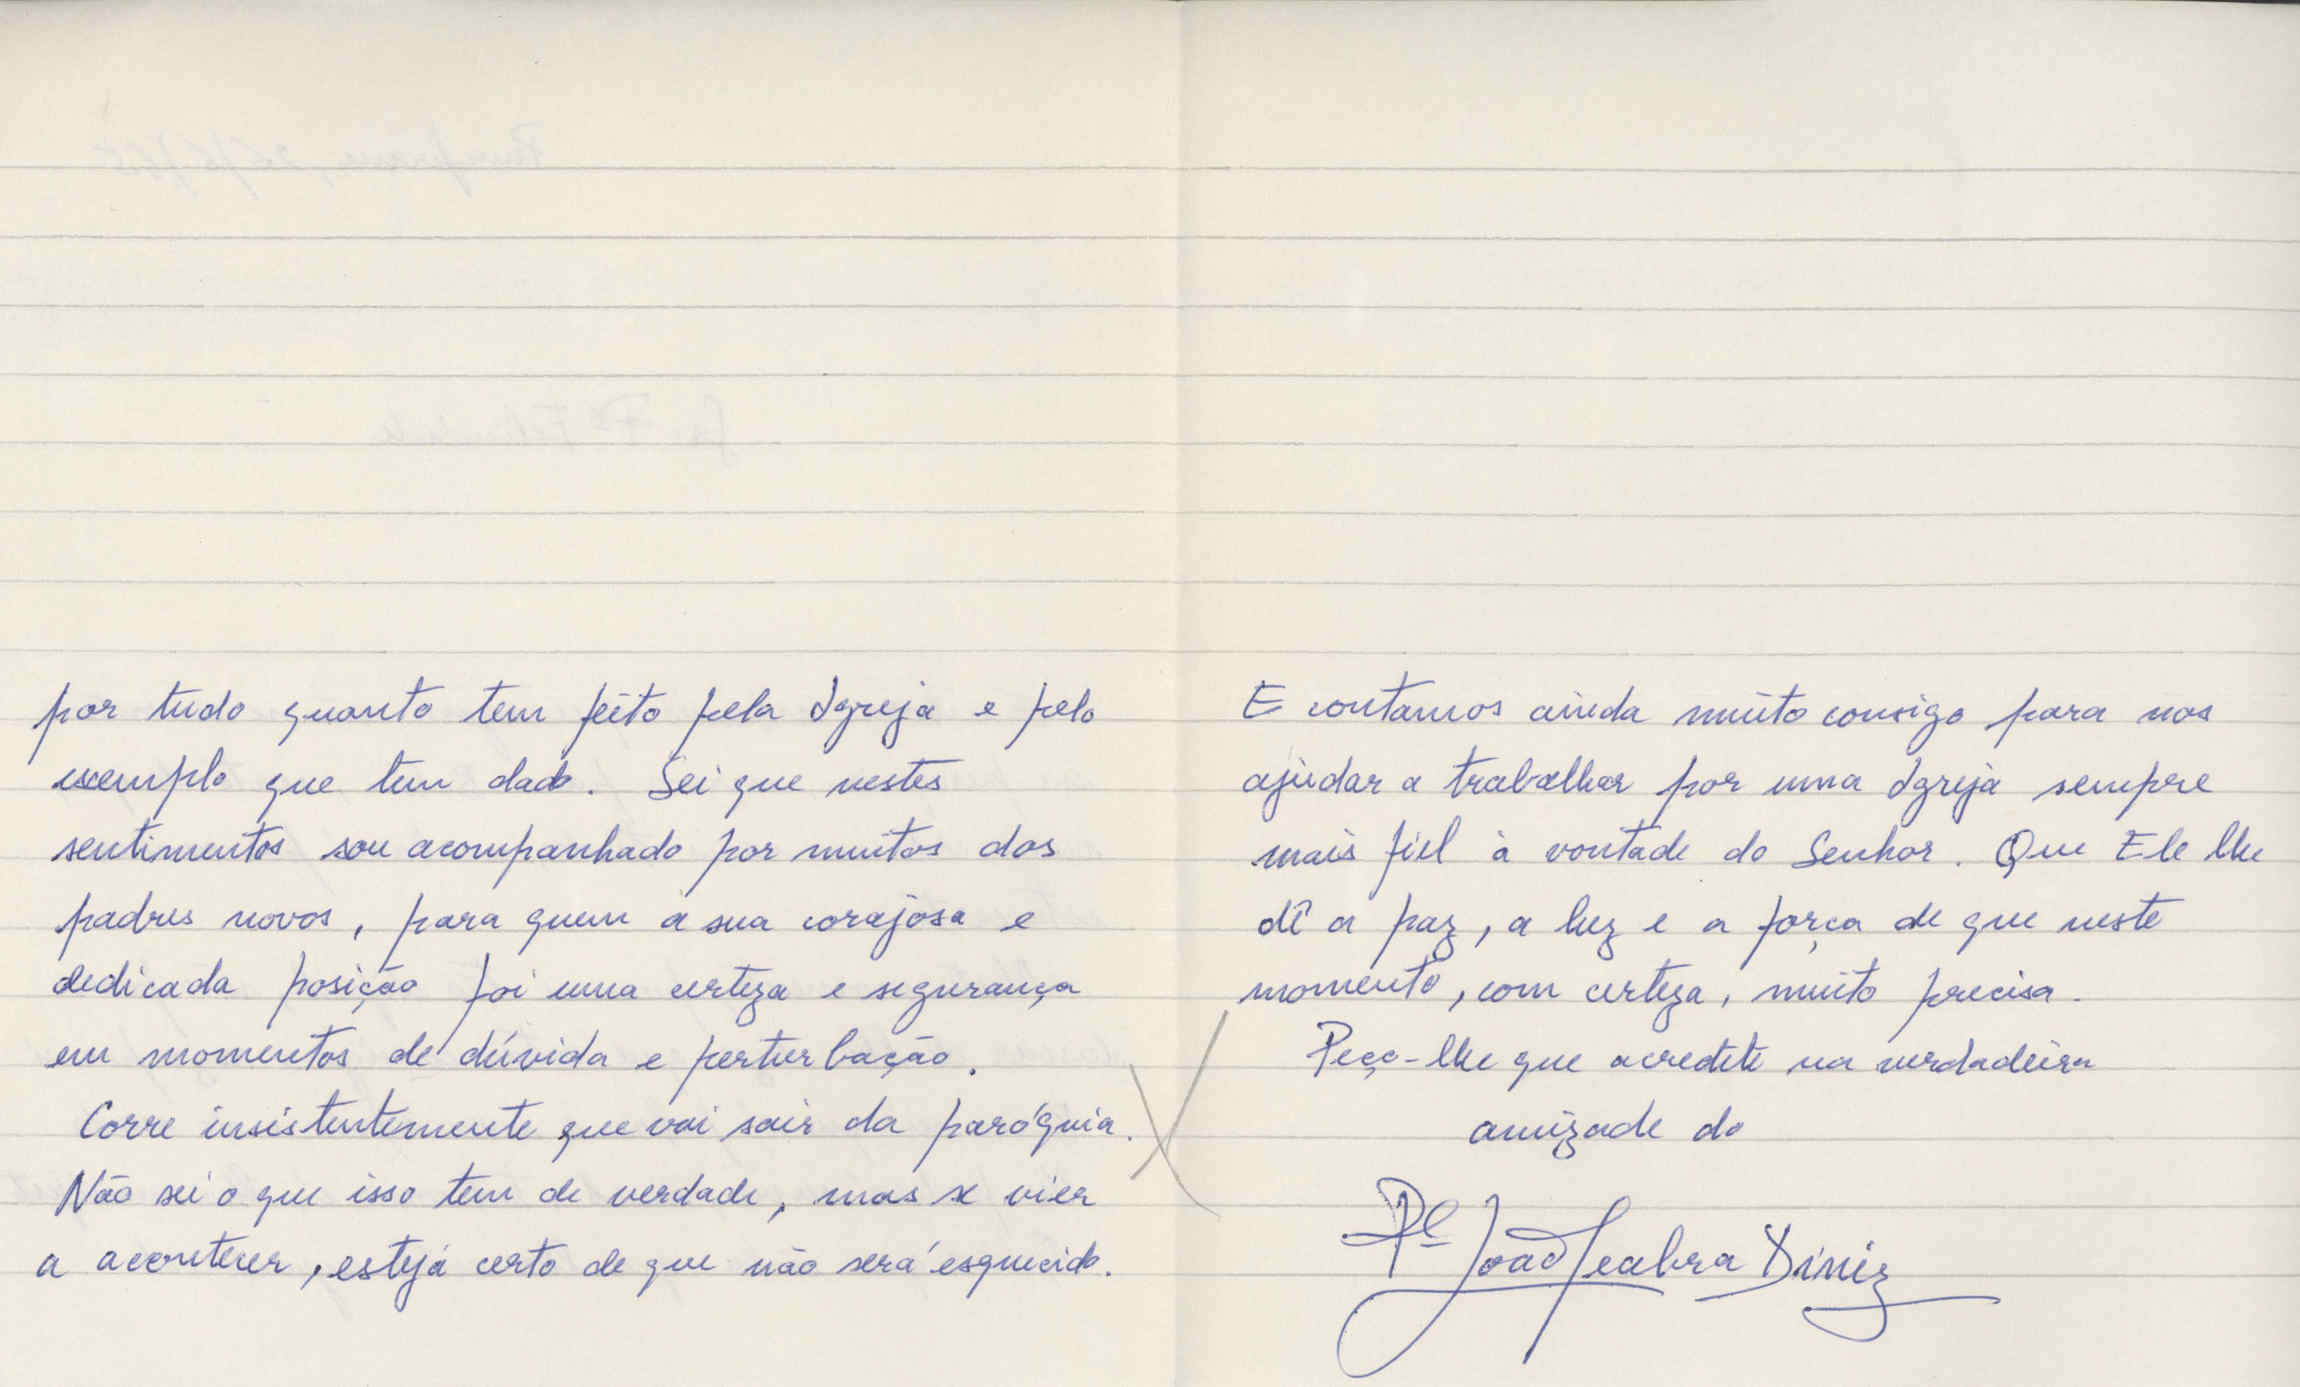 por tudo quanto tem feito pela Igreja e pelo
exemplo que tem dado. Sei que nestes
sentimentos sou acompanhado por muitos dos
padres novos, para quem a sua corajosa e
dedicada posição foi uma certeza e segurança
em momentos de dúvida e perturbação.
Corre insistentemente que vai sair da paróquia.
Não sei o que isso tem de verdade, mas se vier
a acontecer, esteja certo de que não será esquecido.
E contamos ainda muito consigo para nos
ajudar a trabalhar por uma Igreja sempre
mais fiel à vontade do Senhor. Que Ele lhe
dê a paz, a luz e a força de que neste
momento, com certeza, muito precisa.
Peço-lhe que acredite na verdadeira
amizade do
Pe João Seabra Diniz